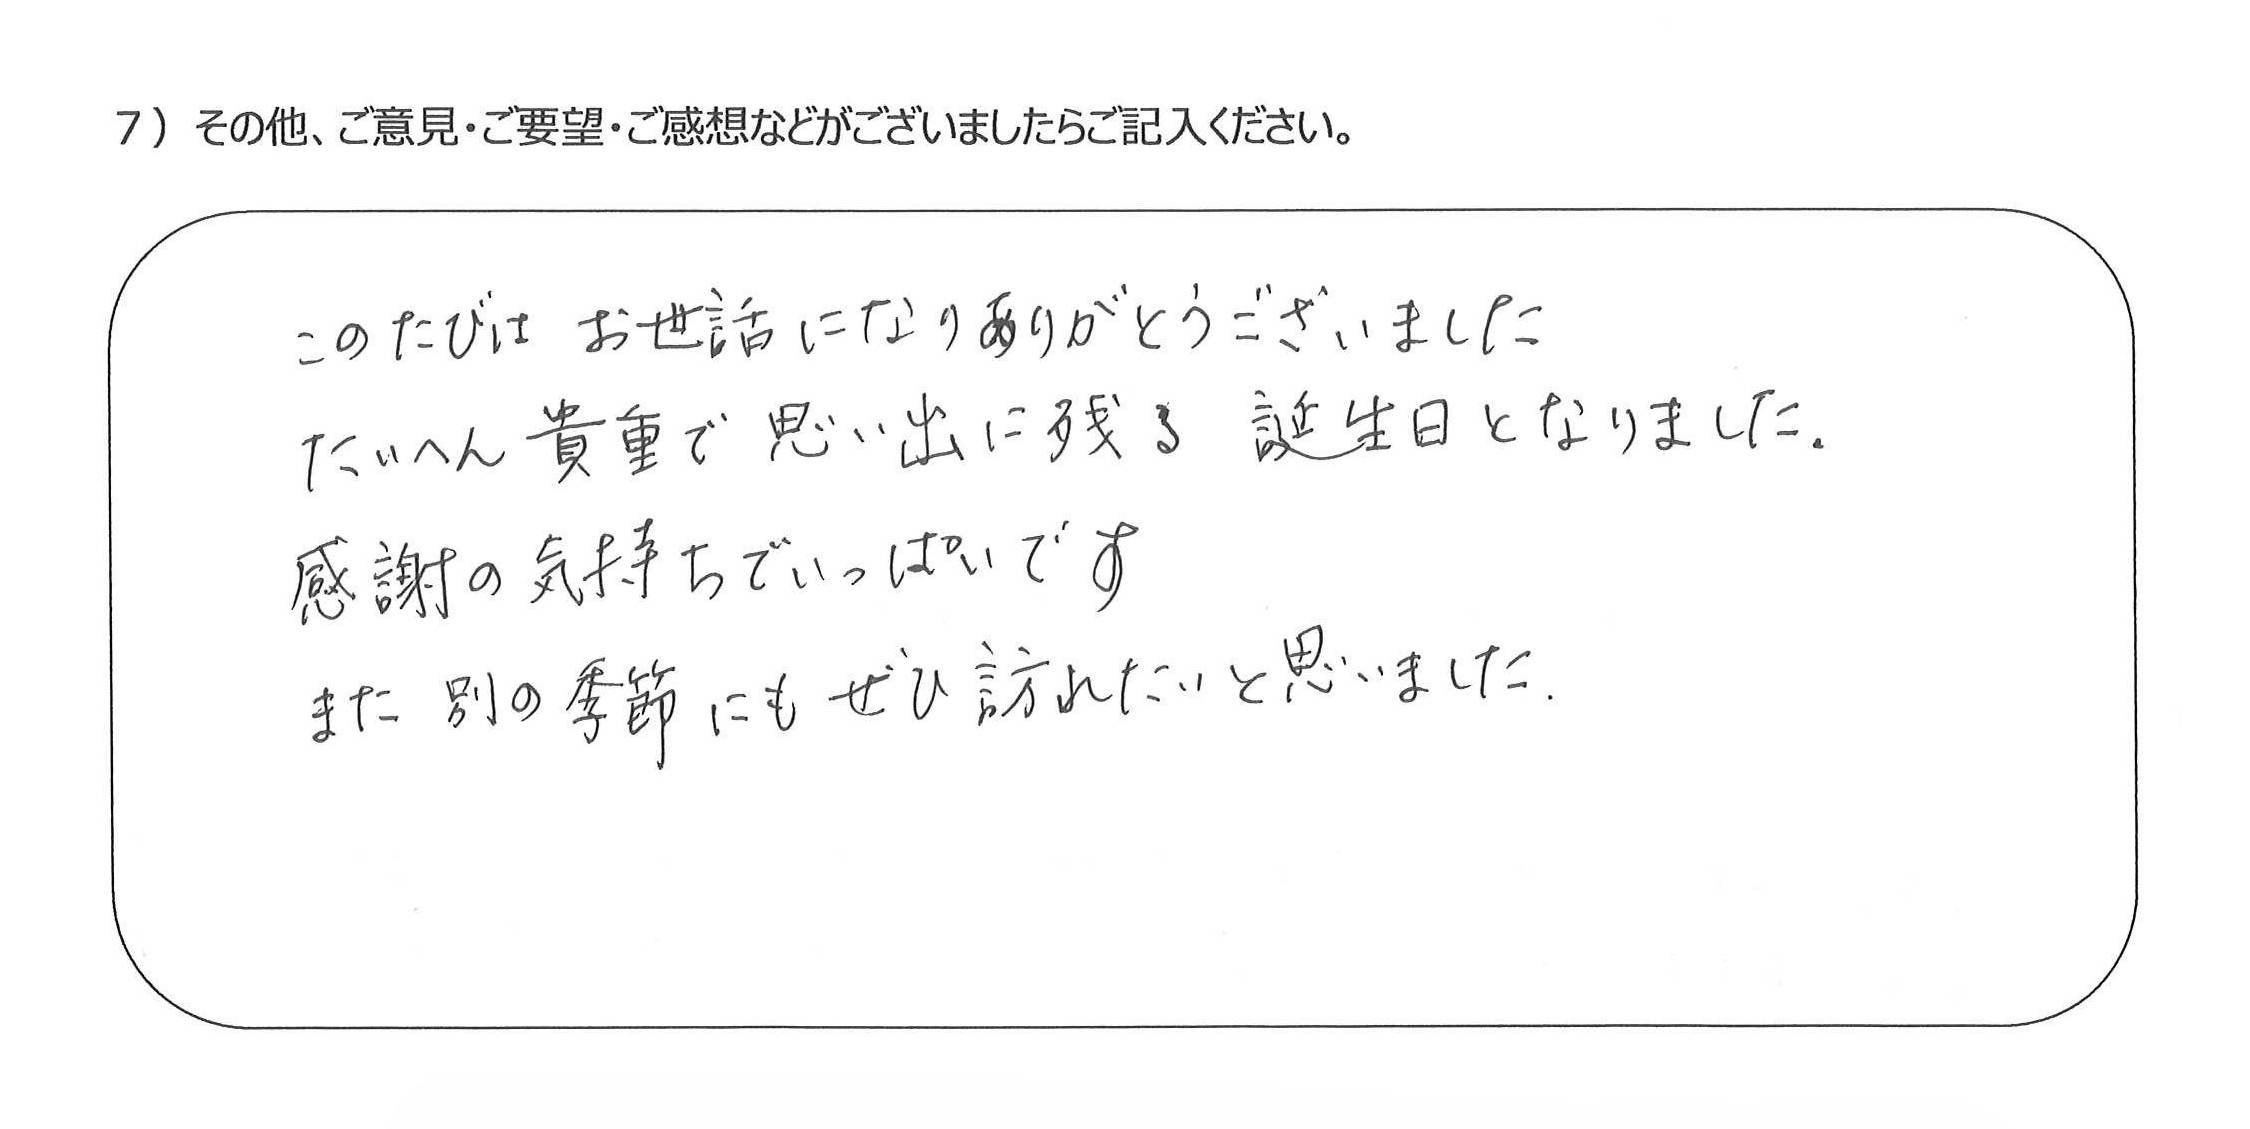 7）その他、ご意見・ご要望・ご感想などがございましたらご記入ください。
このたびは お世話になりありがとうございました
たいへん貴重で 思い出に残る 誕生日となりました.
感謝の気持ちでいっぱいです
また 別の季節にも ぜひ訪れたいと思いました.